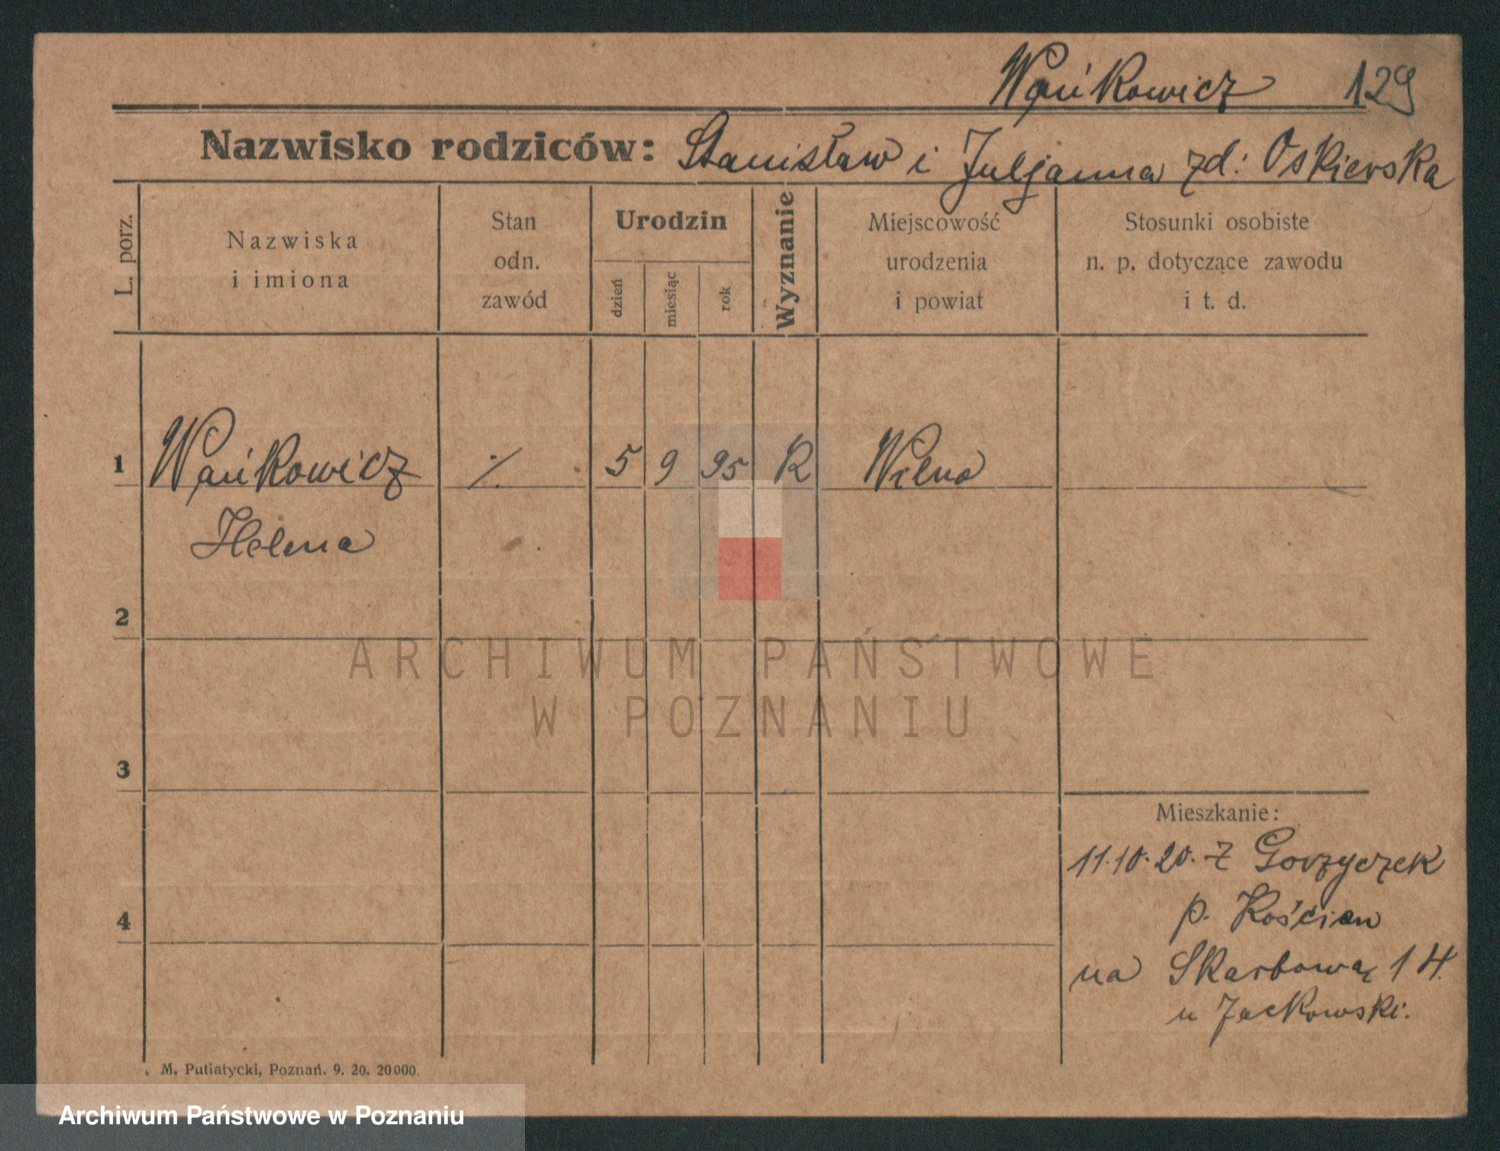 Wańkowicz 129
Nazwisko rodziców: Stanisław i Juljanna zd: Oskierska
L. porz.
Nazwiska
i imiona
Stan
odn.
zawód
Urodzin
dzień
miesiąc
rok
Wyznanie
Miejscowość
urodzenia
i powiat
Stosunki osobiste
n. p. dotyczące zawodu
i t. d.
1 Wańkowicz ./. 5 9 95 R Wilno
Helena
2
ARCHIWUM PAŃSTWOWE
W POZNANIU
3
Mieszkanie:
11.10.20. z Gorzyczek
4 p. Kościan
na Skarbową 14.
u Jackowski.
M. Putiatycki, Poznań. 9. 20. 20000.
Archiwum Państwowe w Poznaniu